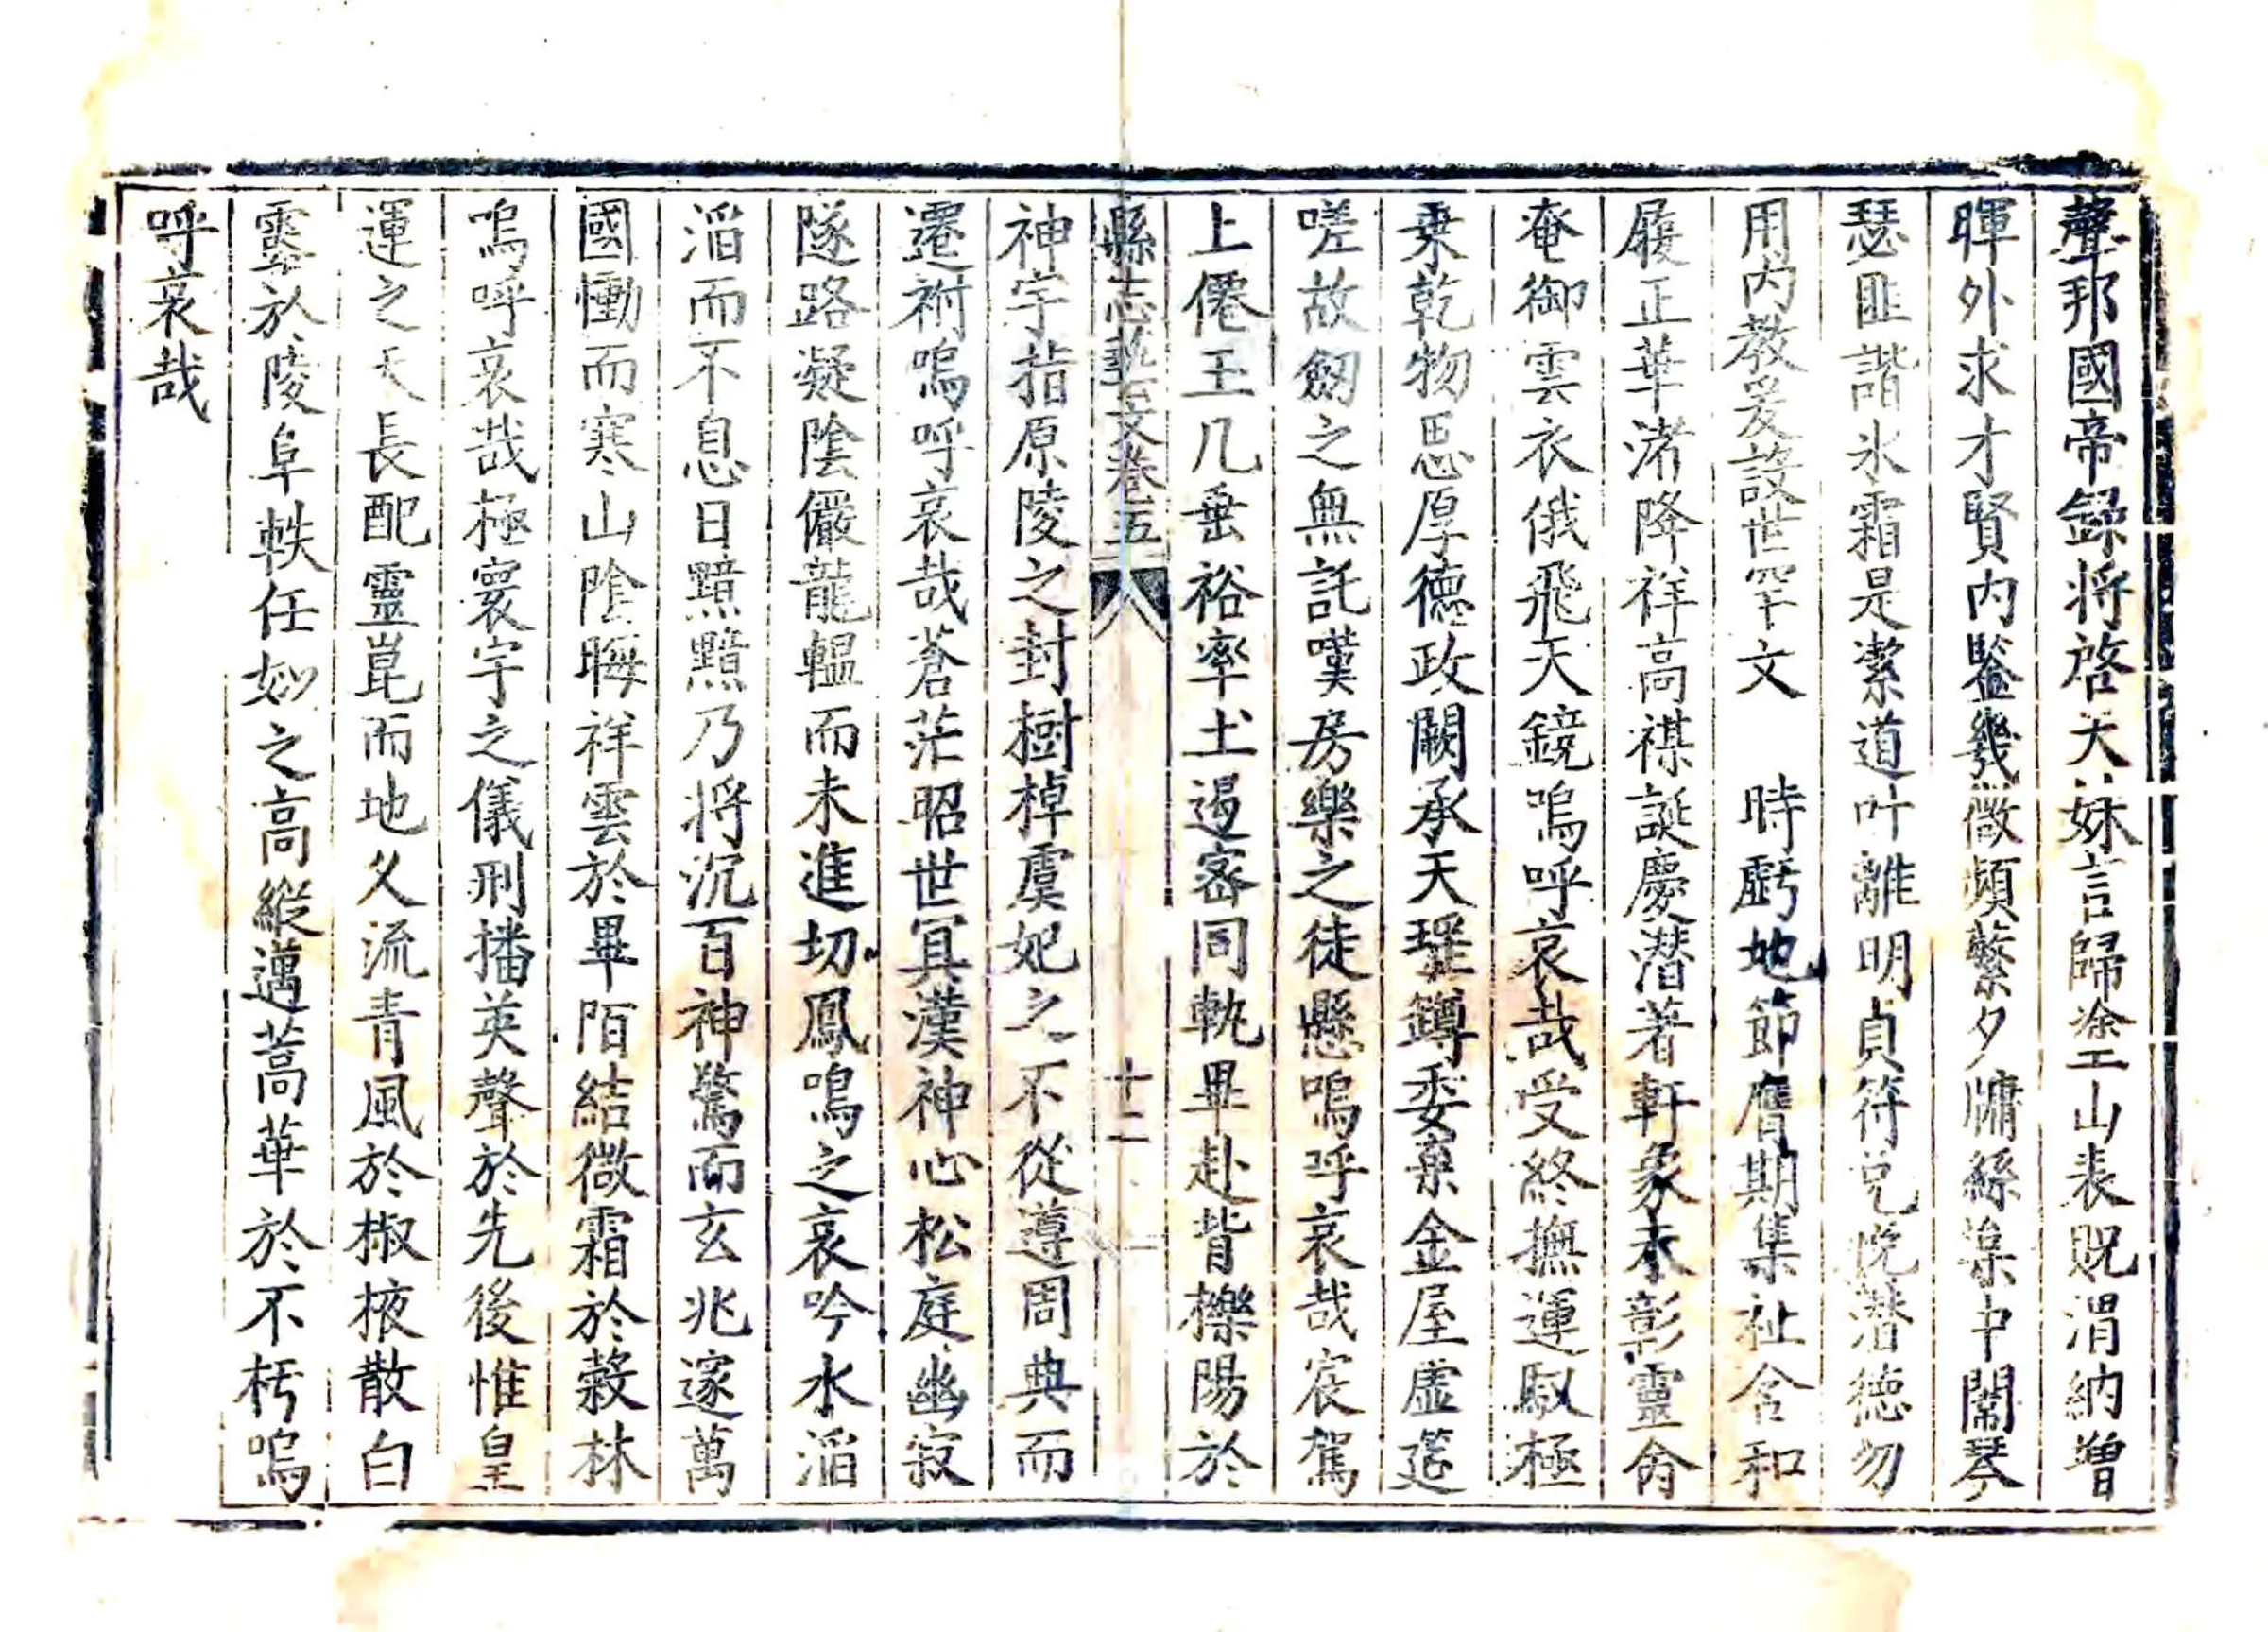 聲邦國帝錄将啓大妹言歸塗山表貺渭納增
暉外求才賢内鑒幾微頻蘩夕牗絲枲中闈琴
瑟匪諧氷霜是潔道叶離明貞符兌悅潜德勿
用内教爰設世罕文 時虧地節膺期集祉含和
履正華渚降祥高禖誕慶潜著軒象未彰靈命
奄御雲衣俄飛天鏡嗚呼哀哉受終撫運馭極
乗乾物思厚德政闕承天瑶罇委棄金屋虛筵
嗟故劒之無託嘆房樂之徒懸嗚呼哀哉宸駕
上僊玉几垂裕率土遏宻同軌畢赴背櫟陽於
縣志藝文卷五 十二
神宇指原陵之封樹悼虞妃之不從遵周典而
遷祔嗚呼哀哉蒼茫昭世冥漠神心松庭幽寂
隧路凝陰儼龍轀而未進切鳳鳴之哀吟水滔
滔而不息日黯黯乃将沉百神驚而玄兆邃萬
國慟而寒山陰晦祥雲於畢陌結微霜於穀林
嗚呼哀哉極寰宇之儀刑播英聲於先後惟皇
運之天長配靈崑而地久流青風於椒掖散白
露於陵阜軼任姒之高縱邁蒿華於不朽嗚
呼哀哉